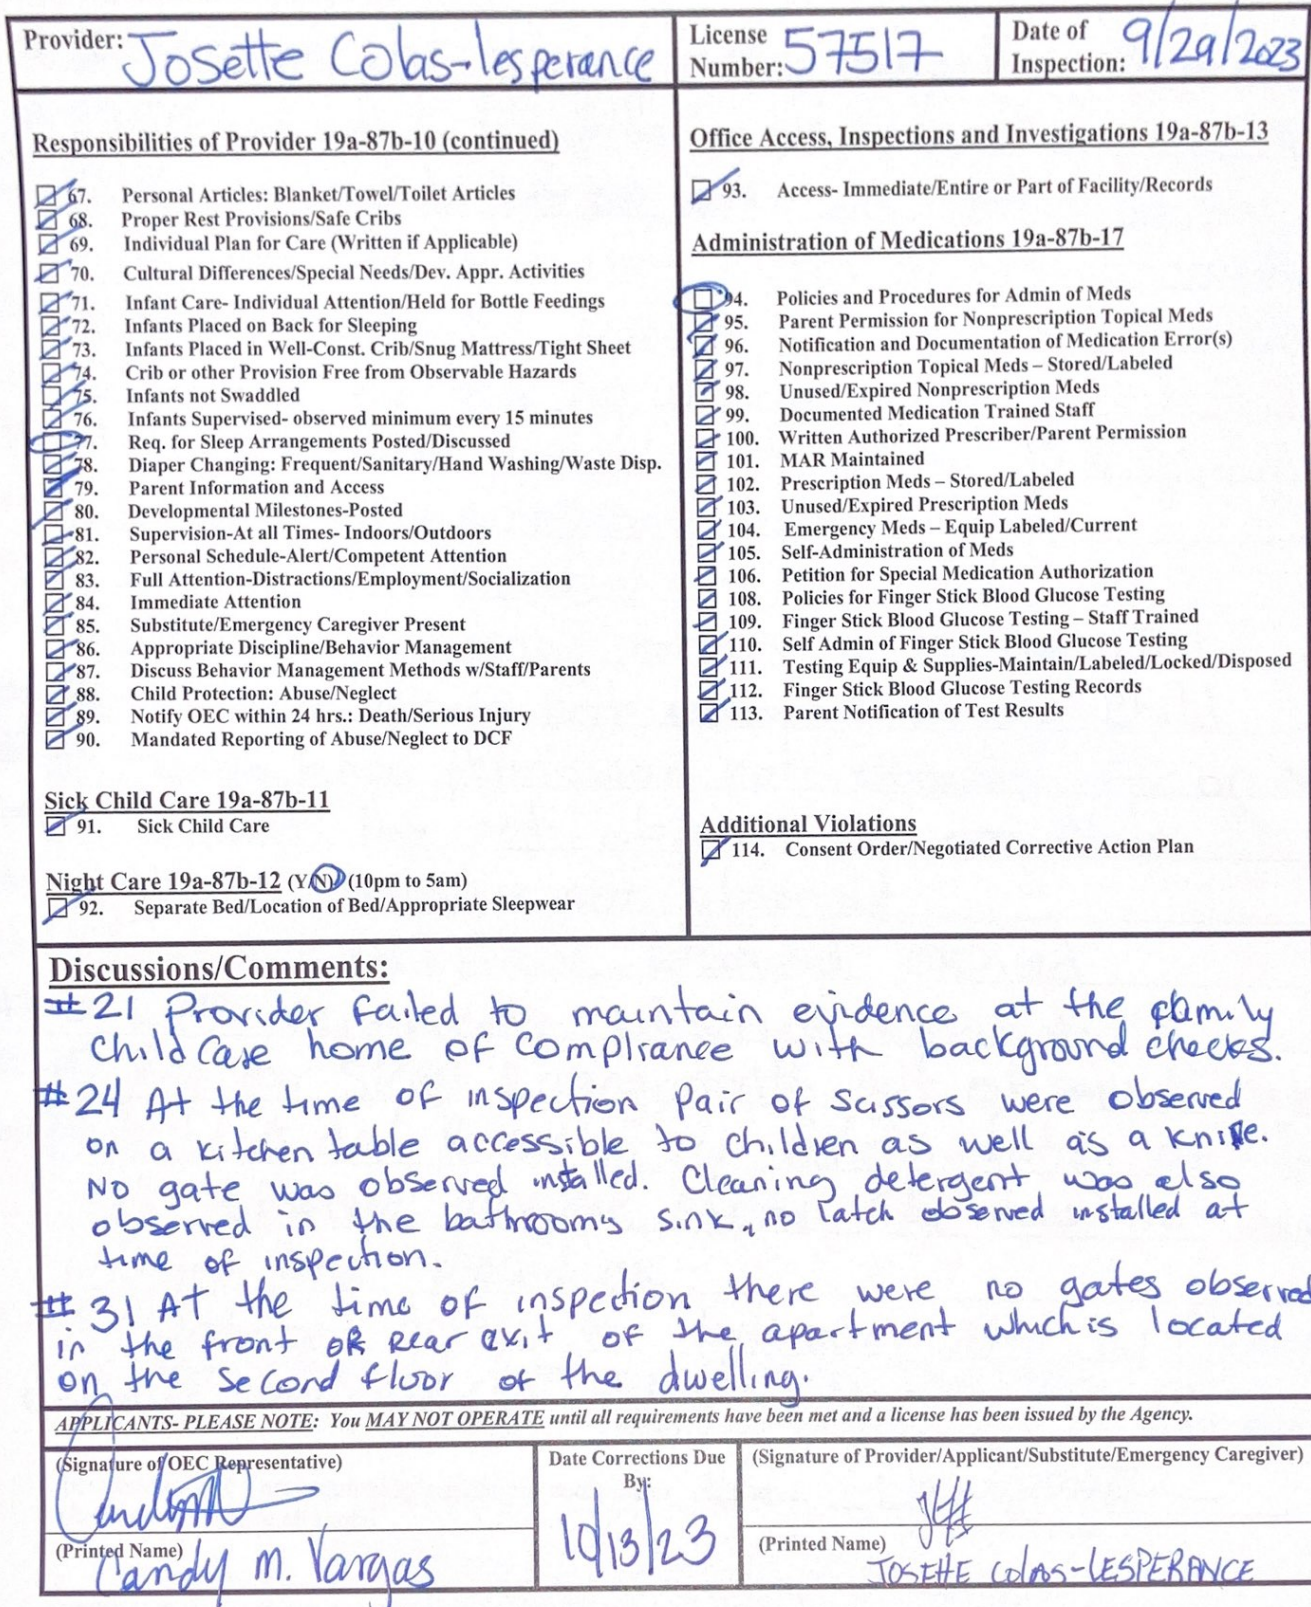 Provider: Josette Colas-lesperance
License Number: 57517
Date of Inspection: 9/29/2023
Responsibilities of Provider 19a-87b-10 (continued)
67. Personal Articles: Blanket/Towel/Toilet Articles
68. Proper Rest Provisions/Safe Cribs
69. Individual Plan for Care (Written if Applicable)
70. Cultural Differences/Special Needs/Dev. Appr. Activities
71. Infant Care- Individual Attention/Held for Bottle Feedings
72. Infants Placed on Back for Sleeping
73. Infants Placed in Well-Const. Crib/Snug Mattress/Tight Sheet
74. Crib or other Provision Free from Observable Hazards
75. Infants not Swaddled
76. Infants Supervised- observed minimum every 15 minutes
77. Req. for Sleep Arrangements Posted/Discussed
78. Diaper Changing: Frequent/Sanitary/Hand Washing/Waste Disp.
79. Parent Information and Access
80. Developmental Milestones-Posted
81. Supervision-At all Times- Indoors/Outdoors
82. Personal Schedule-Alert/Competent Attention
83. Full Attention-Distractions/Employment/Socialization
84. Immediate Attention
85. Substitute/Emergency Caregiver Present
86. Appropriate Discipline/Behavior Management
87. Discuss Behavior Management Methods w/Staff/Parents
88. Child Protection: Abuse/Neglect
89. Notify OEC within 24 hrs.: Death/Serious Injury
90. Mandated Reporting of Abuse/Neglect to DCF
Sick Child Care 19a-87b-11
91. Sick Child Care
Night Care 19a-87b-12 (Y/N) (10pm to 5am)
92. Separate Bed/Location of Bed/Appropriate Sleepwear
Office Access, Inspections and Investigations 19a-87b-13
93. Access- Immediate/Entire or Part of Facility/Records
Administration of Medications 19a-87b-17
94. Policies and Procedures for Admin of Meds
95. Parent Permission for Nonprescription Topical Meds
96. Notification and Documentation of Medication Error(s)
97. Nonprescription Topical Meds – Stored/Labeled
98. Unused/Expired Nonprescription Meds
99. Documented Medication Trained Staff
100. Written Authorized Prescriber/Parent Permission
101. MAR Maintained
102. Prescription Meds – Stored/Labeled
103. Unused/Expired Prescription Meds
104. Emergency Meds – Equip Labeled/Current
105. Self-Administration of Meds
106. Petition for Special Medication Authorization
108. Policies for Finger Stick Blood Glucose Testing
109. Finger Stick Blood Glucose Testing – Staff Trained
110. Self Admin of Finger Stick Blood Glucose Testing
111. Testing Equip & Supplies-Maintain/Labeled/Locked/Disposed
112. Finger Stick Blood Glucose Testing Records
113. Parent Notification of Test Results
Additional Violations
114. Consent Order/Negotiated Corrective Action Plan
Discussions/Comments:
#21 Provider failed to maintain evidence at the family
Child Case home of compliance with background checks.
#24 At the time of inspection pair of scissors were observed
on a kitchen table accessible to children as well as a knife.
No gate was observed installed. Cleaning detergent was also
observed in the bathrooms sink, no latch observed installed at
time of inspection.
#31 At the time of inspection there were no gates observed
in the front or rear exit of the apartment which is located
on the second floor of the dwelling.
APPLICANTS- PLEASE NOTE: You MAY NOT OPERATE until all requirements have been met and a license has been issued by the Agency.
(Signature of OEC Representative)
(Printed Name) Candy M. Vargas
Date Corrections Due
By:
10/13/23
(Signature of Provider/Applicant/Substitute/Emergency Caregiver)
(Printed Name)
JOSETTE COLAS-LESPERANCE